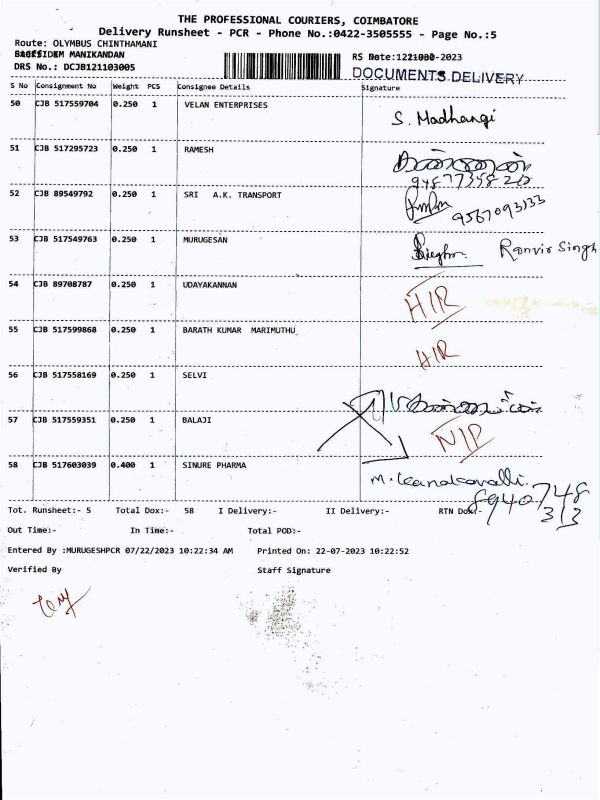 THE PROFESSIONAL COURIERS, COIMBATORE
Delivery Runsheet - PCR - Phone No.:0422-3505555 - Page No.:5
Route: OLYMBUS CHINTHAMANI
MANIKANDAN
RS Date:22-07-2023
DRS No.: DCJB121103005
DOCUMENTS DELIVERY
S No Consignment No Weight PCS Consignee Details Signature
50 CJB 517559704 0.250 1 VELAN ENTERPRISES S. Madhangi
51 CJB 517295723 0.250 1 RAMESH
52 CJB 89549792 0.250 1 SRI A.K. TRANSPORT 9567093133
53 CJB 517549763 0.250 1 MURUGESAN Ranvir Singh
54 CJB 89708787 0.250 1 UDAYAKANNAN HIR
55 CJB 517599868 0.250 1 BARATH KUMAR MARIMUTHU HIR
56 CJB 517558169 0.250 1 SELVI
57 CJB 517559351 0.250 1 BALAJI NIP
58 CJB 517603039 0.400 1 SINURE PHARMA
8940748
313
Tot. Runsheet:- 5 Total Dox:- 58 I Delivery:- II Delivery:- RTN Dox:-
Out Time:- In Time:- Total POD:-
Entered By :MURUGESHPCR 07/22/2023 10:22:34 AM Printed On: 22-07-2023 10:22:52
Verified By Staff Signature